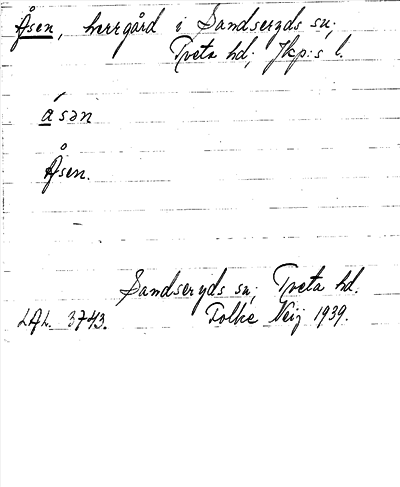 Åsen, herrgård i Sandseryds sn;
Tveta hd; Jkp:s l.
ásən
Åsen.
Sandseryds sn; Tveta hd.
LAL. 3743. Folke Neij 1939.